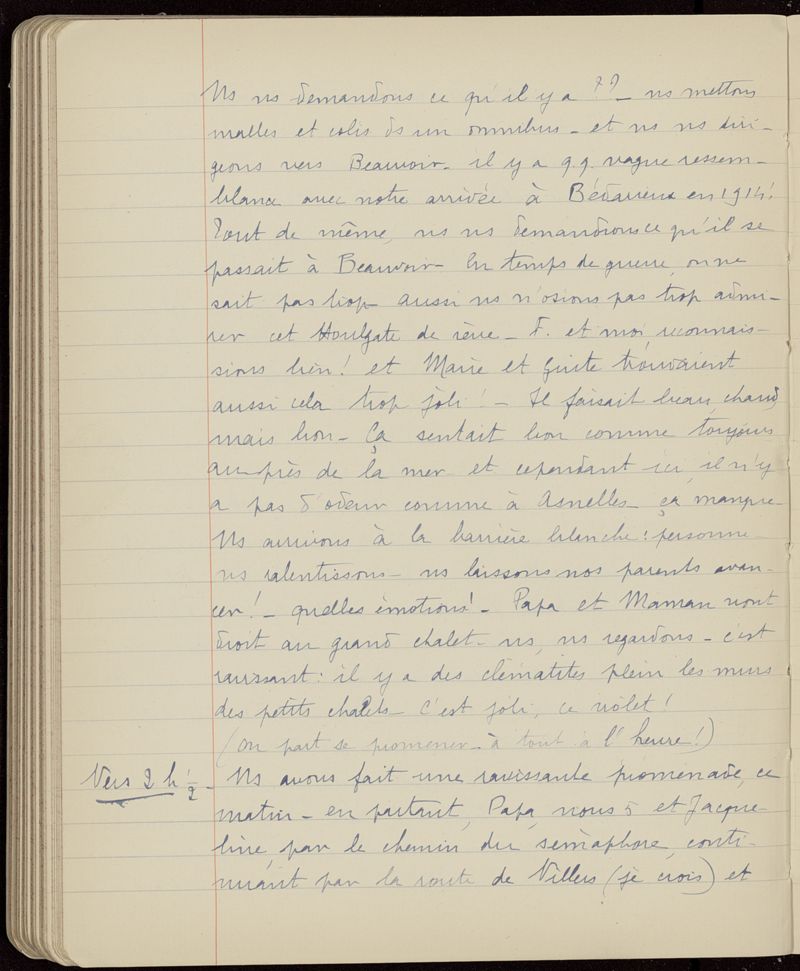 Ns ns demandons ce qu'il y a ?? _ ns mettons
malles et colis ds un omnibus _ et ns ns diri-
geons vers Beauvoir _ il y a q.q. vague ressem-
blance avec notre arrivée à Bédarieux en 1914!
Tout de même, ns ns demandions ce qu'il se
passait à Beauvoir _ En temps de guerre, on ne
sait pas trop _ aussi ns n'osions pas trop admi-
rer cet Houlgate de rêve _ F. et moi reconnais-
sions bien! et Marie et Guite trouvaient
aussi cela trop joli! _ Il faisait beau, chaud,
mais bon _ Ça sentait bon comme toujours
auprès de la mer et cependant ici, il n'y
a pas d'odeur comme à Asnelles _ ça manque _
Ns arrivons à la barrière blanche: personne _
ns ralentissons _ ns laissons nos parents avan-
cer! _ quelles émotions! _ Papa et Maman vont
droit au grand chalet _ ns, ns regardons _ c'est
ravissant: il y a des clématites plein les murs
des petits chalets _ C'est joli, ce violet!
(On part se promener _ à tout à l'heure!)
Vers 2 h 1/2 _ Ns avons fait une ravissante promenade, ce
matin _ en partant, Papa, nous 5 et Jacque-
line, par le chemin du sémaphore, conti-
nuant par la route de Villers (je crois) et